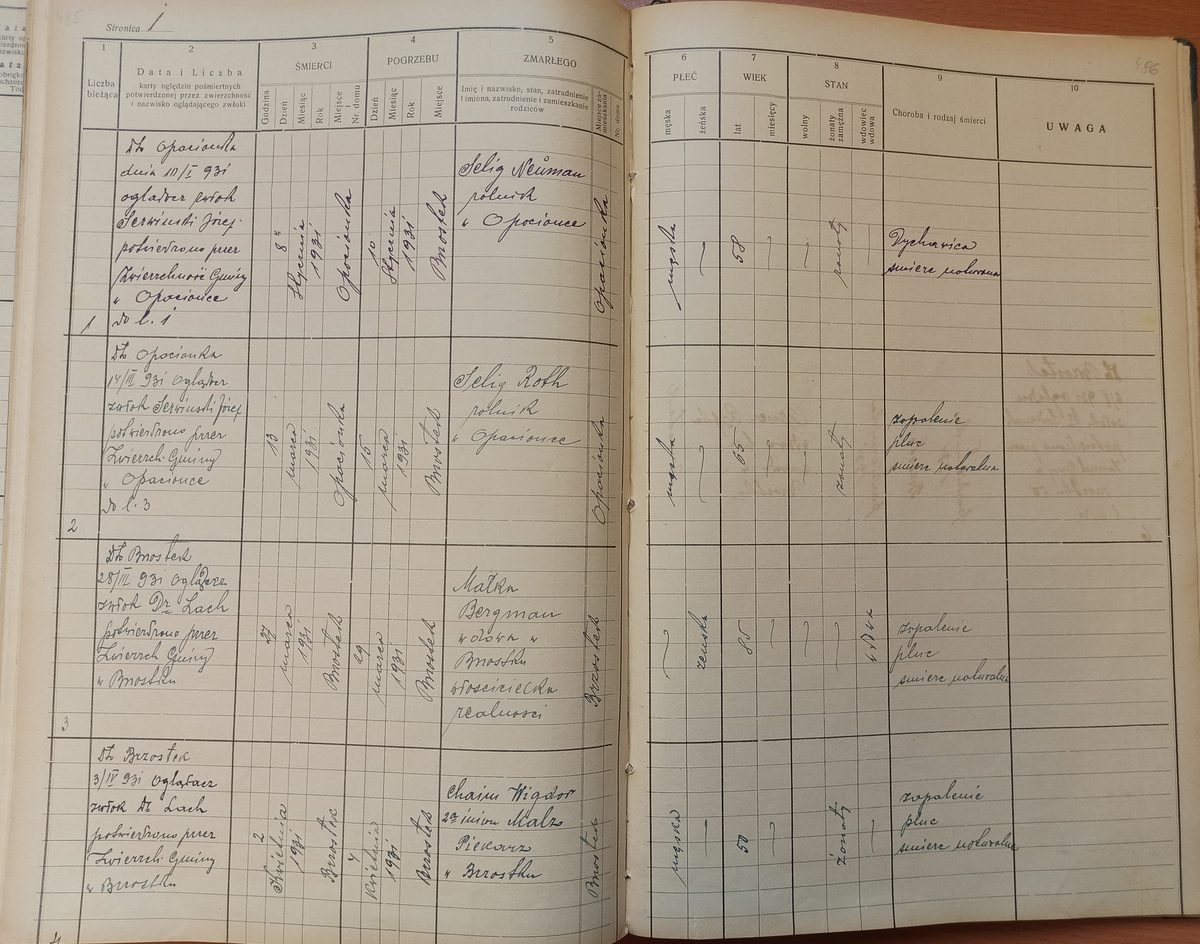 Stronica 1
1
2
3
4
5
Liczba
bieżąca
Data i Liczba
karty oględzin pośmiertnych
potwierdzonej przez zwierzchność
i nazwisko oglądającego zwłoki
ŚMIERCI
Godzina
Dzień
Miesiąc
Rok
Miejsce
Nr. domu
POGRZEBU
Dzień
Miesiąc
Rok
Miejsce
ZMARŁEGO
Imię i nazwisko, stan, zatrudnienie
i imiona, zatrudnienie i zamieszkanie
rodziców
Miejsce za-
mieszkania
Nr. domu
6
7
8
9
10
PŁEĆ
męska
żeńska
WIEK
lat
miesięcy
STAN
wolny
żonaty
zamężna
wdowiec
wdowa
Choroba i rodzaj śmierci
UWAGA
496
1
Opocionka
dnia 10/I 931
oglądacz zwłok
Serwinski Józef
potwierdzono przez
Zwierzchność Gminy
w Opocionce
do l. 1
8
Stycznia
1931
Opocionka
10
Stycznia
1931
Brzostek
Selig Neuman
rolnik
w Opocionce
Opocionka
męska
58
żonaty
Dychawica
smierc naturalna
2
Opocionka
14/III 931 Oglądacz
zwłok Serwinski Józef
potwierdzono przez
Zwierzch. Gminy
w Opocionce
do l. 3
13
marca
1931
Opocionka
15
marca
1931
Brzostek
Selig Roth
rolnik
w Opocionce
Opocionka
męska
65
żonaty
zapalenie
płuc
smierc naturalna
3
Brzostek
28/III 931 Oglądacz
zwłok Dr Lach
potwierdzono przez
Zwierzch Gminy
w Brzostku
27
marca
1931
Brzostek
29
marca
1931
Brzostek
Małka
Bergman
wdowa w
Brzostku
włościcielka
realności
Brzostek
żenska
85
wdowa
zapalenie
płuc
smierc naturalna
4
Brzostek
3/IV 931 Oglądacz
zwłok Dr Lach
potwierdzono przez
Zwierzch Gminy
w Brzostku
2
Kwietnia
1931
Brzostek
4
Kwietnia
1931
Brzostek
Chaim Wigdor
2ga imion Malz
Piekarz
w Brzostku
Brzostek
męska
50
żonaty
zapalenie
płuc
smierc naturalna